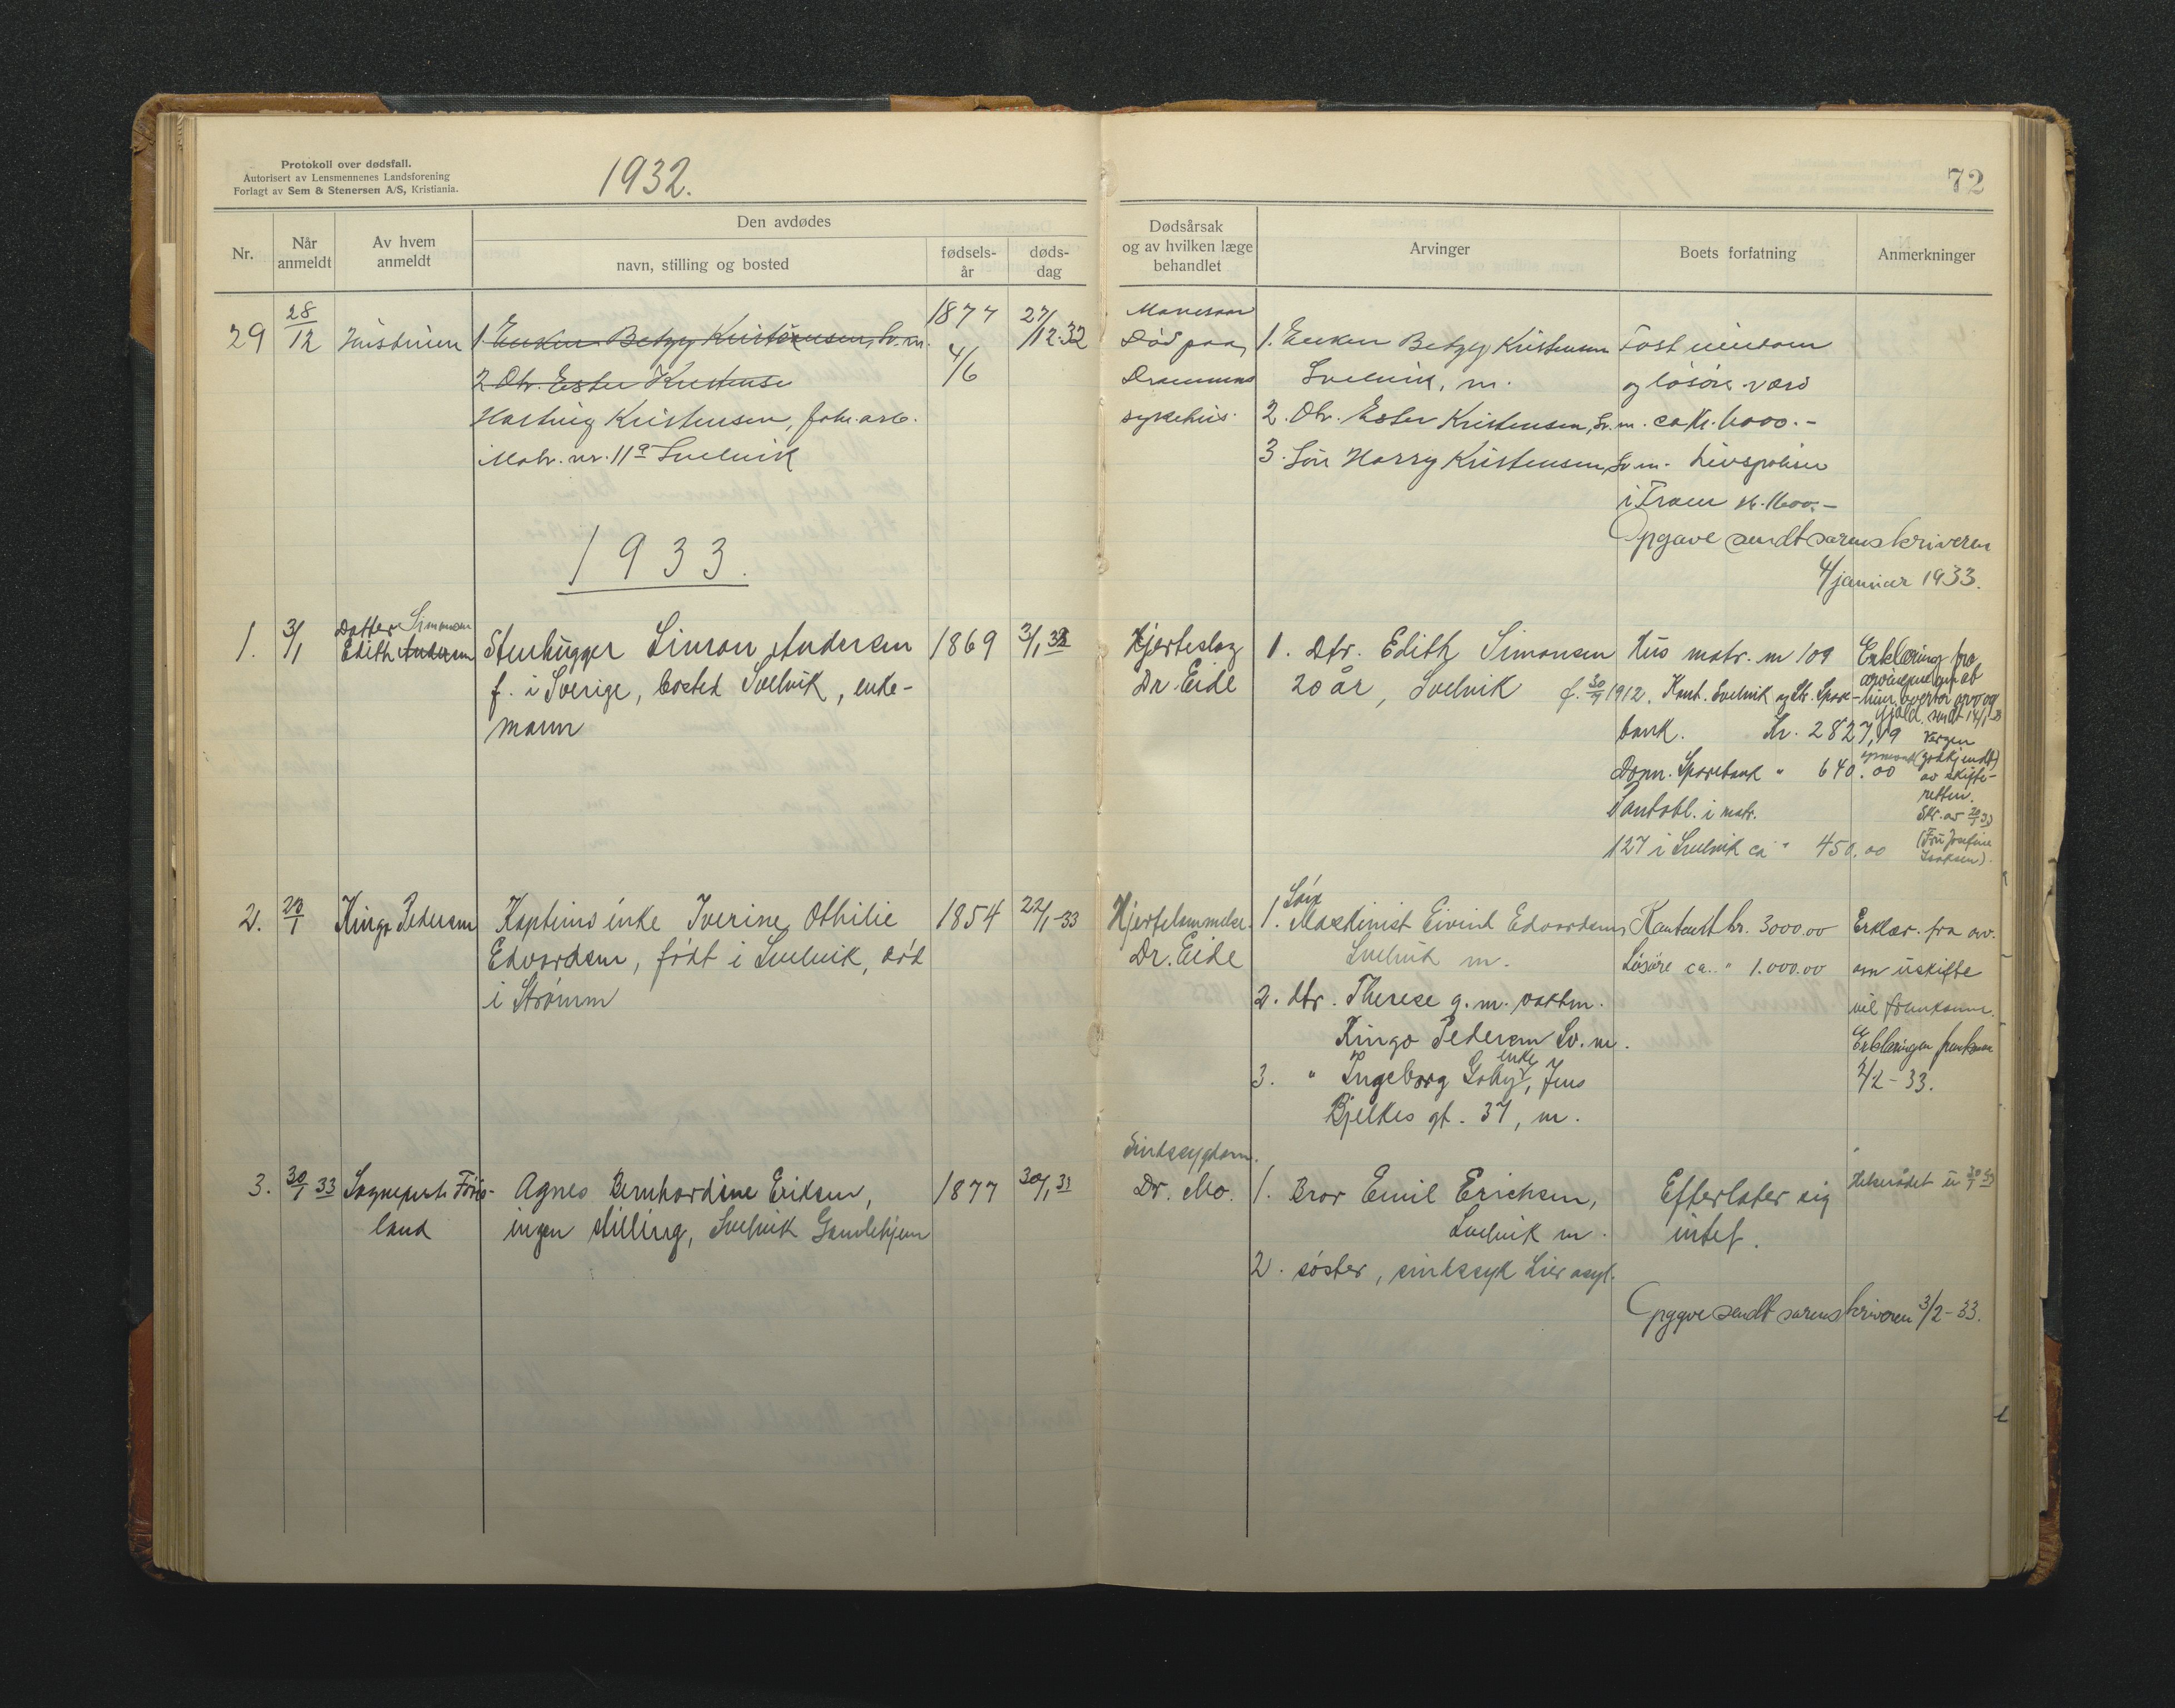 Protokoll over dødsfall.
Autorisert av Lensmennenes Landsforening
Forlagt av Sem & Stenersen A/S, Kristiania.
1932.
72
Nr.
Når anmeldt
Av hvem anmeldt
Den avdødes
navn, stilling og bosted
fødsels-år
døds-dag
Dødsårsak og av hvilken læge behandlet
Arvinger
Boets forfatning
Anmerkninger
29
28/12
Hustruen
1 Enken Betzy Kristensen, Sv. m.
2 Dtr. Ester Kristensen
Hartvig Kristensen, fabr. arb.
Matr. nr. 11a Svelvik
1877
4/6
27/12.32
Mavesaar
Død paa
Drammens
sykehus.
1. Enken Betzy Kristensen
Svelvik, m.
2. Dtr. Ester Kristensen, Sv. m.
3. Søn Harry Kristensen, Sv. m.
Fast eiendom
og løsøre værd
ca kr. 6000.-
Livspolise
i Fram kr. 1600.-
Opgave sendt sorenskriveren
4/januar 1933.
1933.
1.
3/1
Datter Simonsen
Edith Andersen
Stenhugger Simon Andersen
f. i Sverige, bosted Svelvik, enke-
mann
1869
3/1 33
Hjerteslag
Dr. Eide
1. Dtr. Edith Simonsen
20 år, Svelvik f. 30/9 1912.
Hus matr. nr 109
Kont. Svelvik og Str. Spare-
bank. Kr. 2827,19
Dram. Sparebank " 640.00
Pantobl. i matr.
127 i Svelvik ca " 450.00
Erklæring fra
arvingene om at
hun overtar arv og
gjeld. sendt 14/1-33
Vergen
opnevnt (godkjendt)
av skifte-
retten.
Skr. av 20/1 33
(Fru Josefine
Isaksen).
2.
23/1
Kingo Pedersen
Kapteins enke Iverine Othilie
Edvardsen, født i Svelvik, død
i Strømm
1854
22/1-33
Hjertelammelse.
Dr. Eide
Søn
1. Maskinist Eivind Edvardsen,
Svelvik m.
2. dtr. Therese g. m. vaktm.
Kingo Pedersen Sv. m.
3. " Ingeborg enke, Jens
Bjelkes gt. 37, m.
Kontant kr. 3000.00
Løsøre ca. " 1.000.00
Erklær. fra arv.
om uskifte
vil fremkomme.
Erklæringen fremkom
2/2-33.
3.
30/1 33
Sogneprest Førisland
Agnes Bernhardine Eriksen,
ingen stilling, Svelvik Gamlehjem
1877
30/1 33
Sindssygdom.
Dr. Mo.
1. Bror Emil Erichsen,
Svelvik m.
2. søster, sindssyk Lier asyl.
Efterlater sig
intet.
Opgave sendt sorenskriveren 3/2-33.